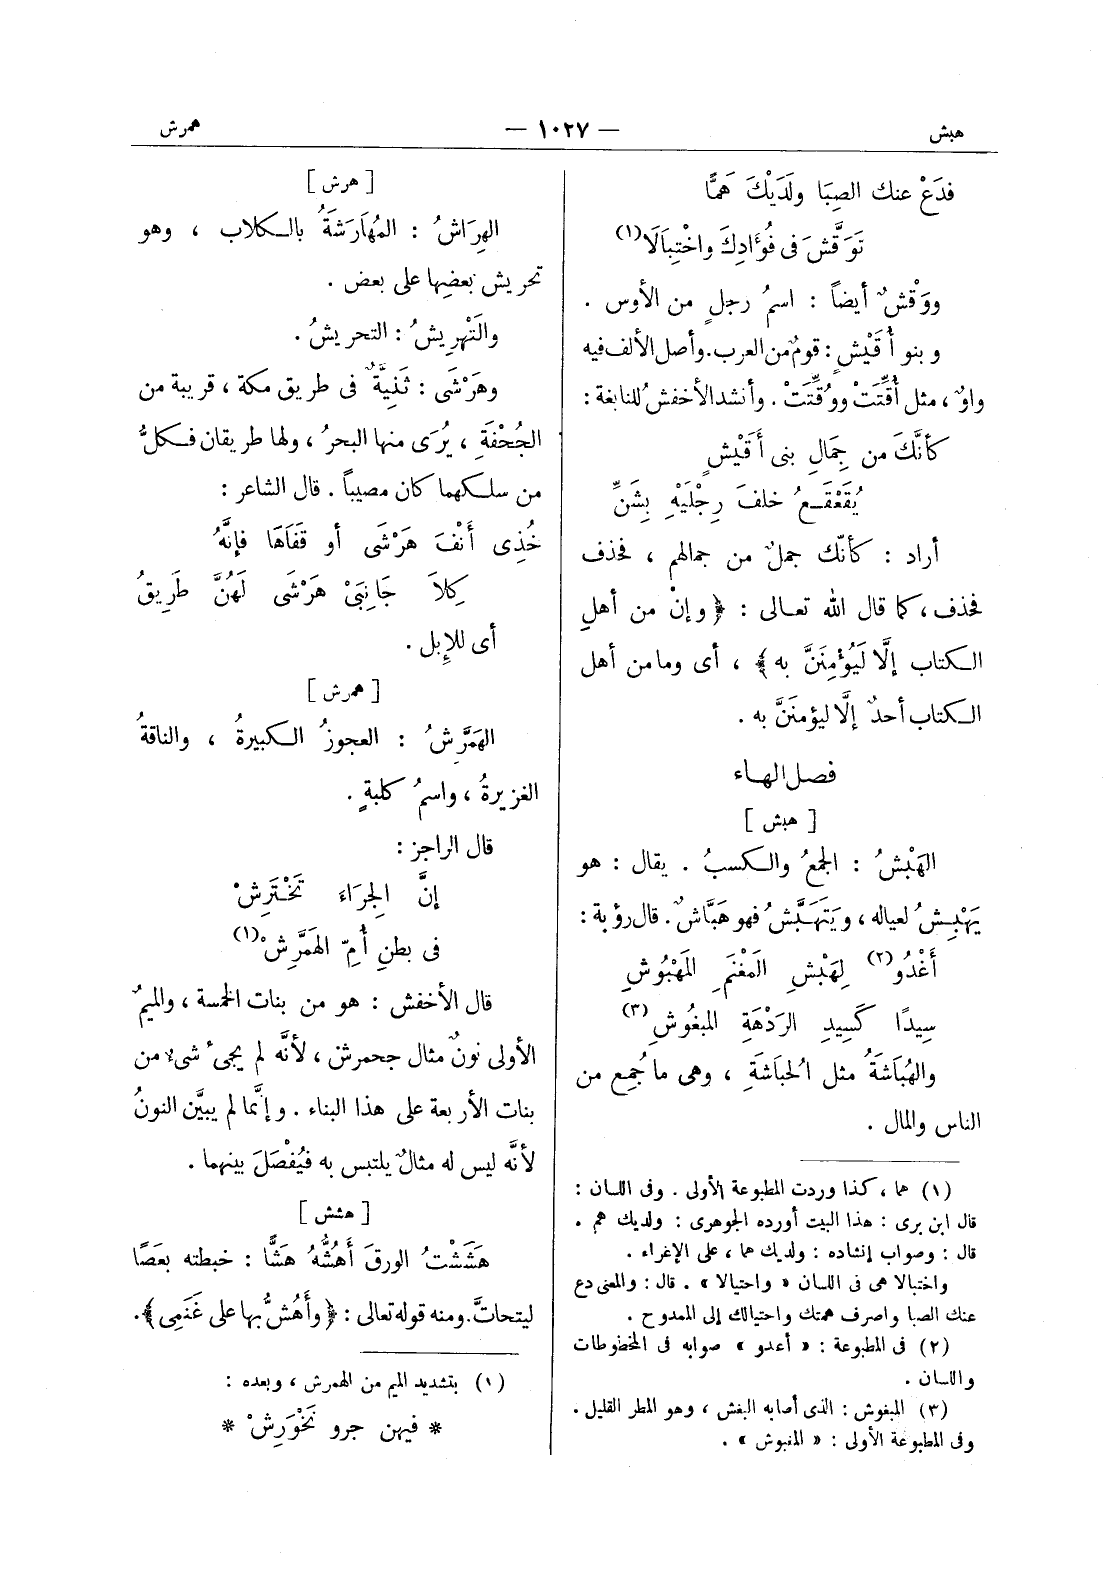 هبش — ١٠٢٧ — همرش
فدَعْ عنك الصِبَا ولَدَيْكَ هَمًّا
تَوَقَّشَ فى فُؤَادِكَ واخْتِبَالَا(١)
ووَقْشٌ أيضاً : اسمُ رجلٍ من الأوس .
وبنو أُقَيْشٍ : قومٌ من العرب . وأصل الألف فيه
واوٌ ، مثل أُقِّتَتْ ووُقِّتَتْ . وأنشد الأخفشُ للنابغة :
كأنَّكَ من جِمَالِ بنى أُقَيْشٍ
يُقَعْقَعُ خلفَ رِجْلَيْهِ بِشَنِّ
أراد : كأنّك جملٌ من جمالهم ، فحذف
فحذف ، كما قال الله تعالى : ﴿ وإنْ من أهلِ
الكتاب إلَّا لَيُؤْمِنَنَّ به ﴾ ، أى وما من أهل
الكتاب أحدٌ إلَّا ليؤمنَنَّ به .
فصل الهاء
[ هبش ]
الهَبْشُ : الجمعُ والكسبُ . يقال : هو
يَهْبِشُ لعياله ، ويَتَهَبَّشُ فهو هَبَّاشٌ . قال رؤبة :
أَغْدُو(٢) لِهَبْشِ المَغْنَمِ المَهْبُوشِ
سِيدًا كَسِيدِ الرَدْهَةِ المبغُوشِ(٣)
والهُبَاشَةُ مثل الحُبَاشَةِ ، وهى ما جُمِع من
الناس والمال .
(١) هما ، كذا وردت المطبوعة الأولى . وفى اللسان :
قال ابن برى : هذا البيت أورده الجوهرى : ولديك هم .
قال : وصواب إنشاده : ولديك هما ، على الإغراء .
واختبالا هى فى اللسان « واحتيالا » . قال : والمعنى دع
عنك الصبا واصرف همتك واحتيالك إلى الممدوح .
(٢) فى المطبوعة : « أعدو » صوابه فى المخطوطات
واللسان .
(٣) المبغوش : الذى أصابه البغش ، وهو المطر القليل .
وفى المطبوعة الأولى : « المنبوش » .
[ هرش ]
الهِرَاشُ : المُهَارَشَةُ بالكلاب ، وهو
تحريش بَعضِها على بعض .
والتَهْرِيشُ : التحريشُ .
وهَرْشَى : ثَنِيَّةٌ فى طريق مكة ، قريبة من
الجُحْفَةِ ، يُرَى منها البحرُ ، ولها طريقان فكلُّ
من سلكهما كان مصيباً . قال الشاعر :
خُذِى أَنْفَ هَرْشَى أو قفَاهَا فإنَّهُ
كِلاَ جَانِبَىْ هَرْشَى لَهُنَّ طَرِيقُ
أى للإبل .
[ همرش ]
الهَمَّرِشُ : العجوزُ الكبيرةُ ، والناقةُ
الغزيرةُ ، واسمُ كلبةٍ .
قال الراجز :
إنَّ الجِرَاءَ تَخْتَرِشْ
فى بطنِ أُمِّ الهَمَّرِشْ(١)
قال الأخفش : هو من بنات الخمسة ، والميمُ
الأولى نونٌ مثال جحمرش ، لأنَّه لم يجىء شىء من
بنات الأربعة على هذا البناء . وإنَّما لم يبيَّن النونُ
لأنَّه ليس له مثالٌ يلتبس به فيُفْصَلَ بينهما .
[ هشش ]
هَشَشْتُ الورقَ أَهُشُّهُ هَشًّا : خبطته بعَصًا
ليتحاتَّ . ومنه قوله تعالى : ﴿ وأَهُشُّ بها على غَنَمِى ﴾ .
(١) بتشديد الميم من الهمرش ، وبعده :
* فيهن جرو نَخْوَرِشْ *